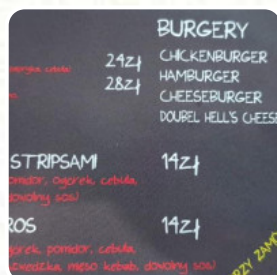 BURGERY
24zł CHICKENBURGER
28zł HAMBURGER
CHEESEBURGER
DOUBEL HELL'S CHEESE
STRIPSAMI 14zł
pomidor, ogórek, cebula,
dowolny sos)
ROS 14zł
górek, pomidor, cebula,
mięso kebab, dowolny sos)